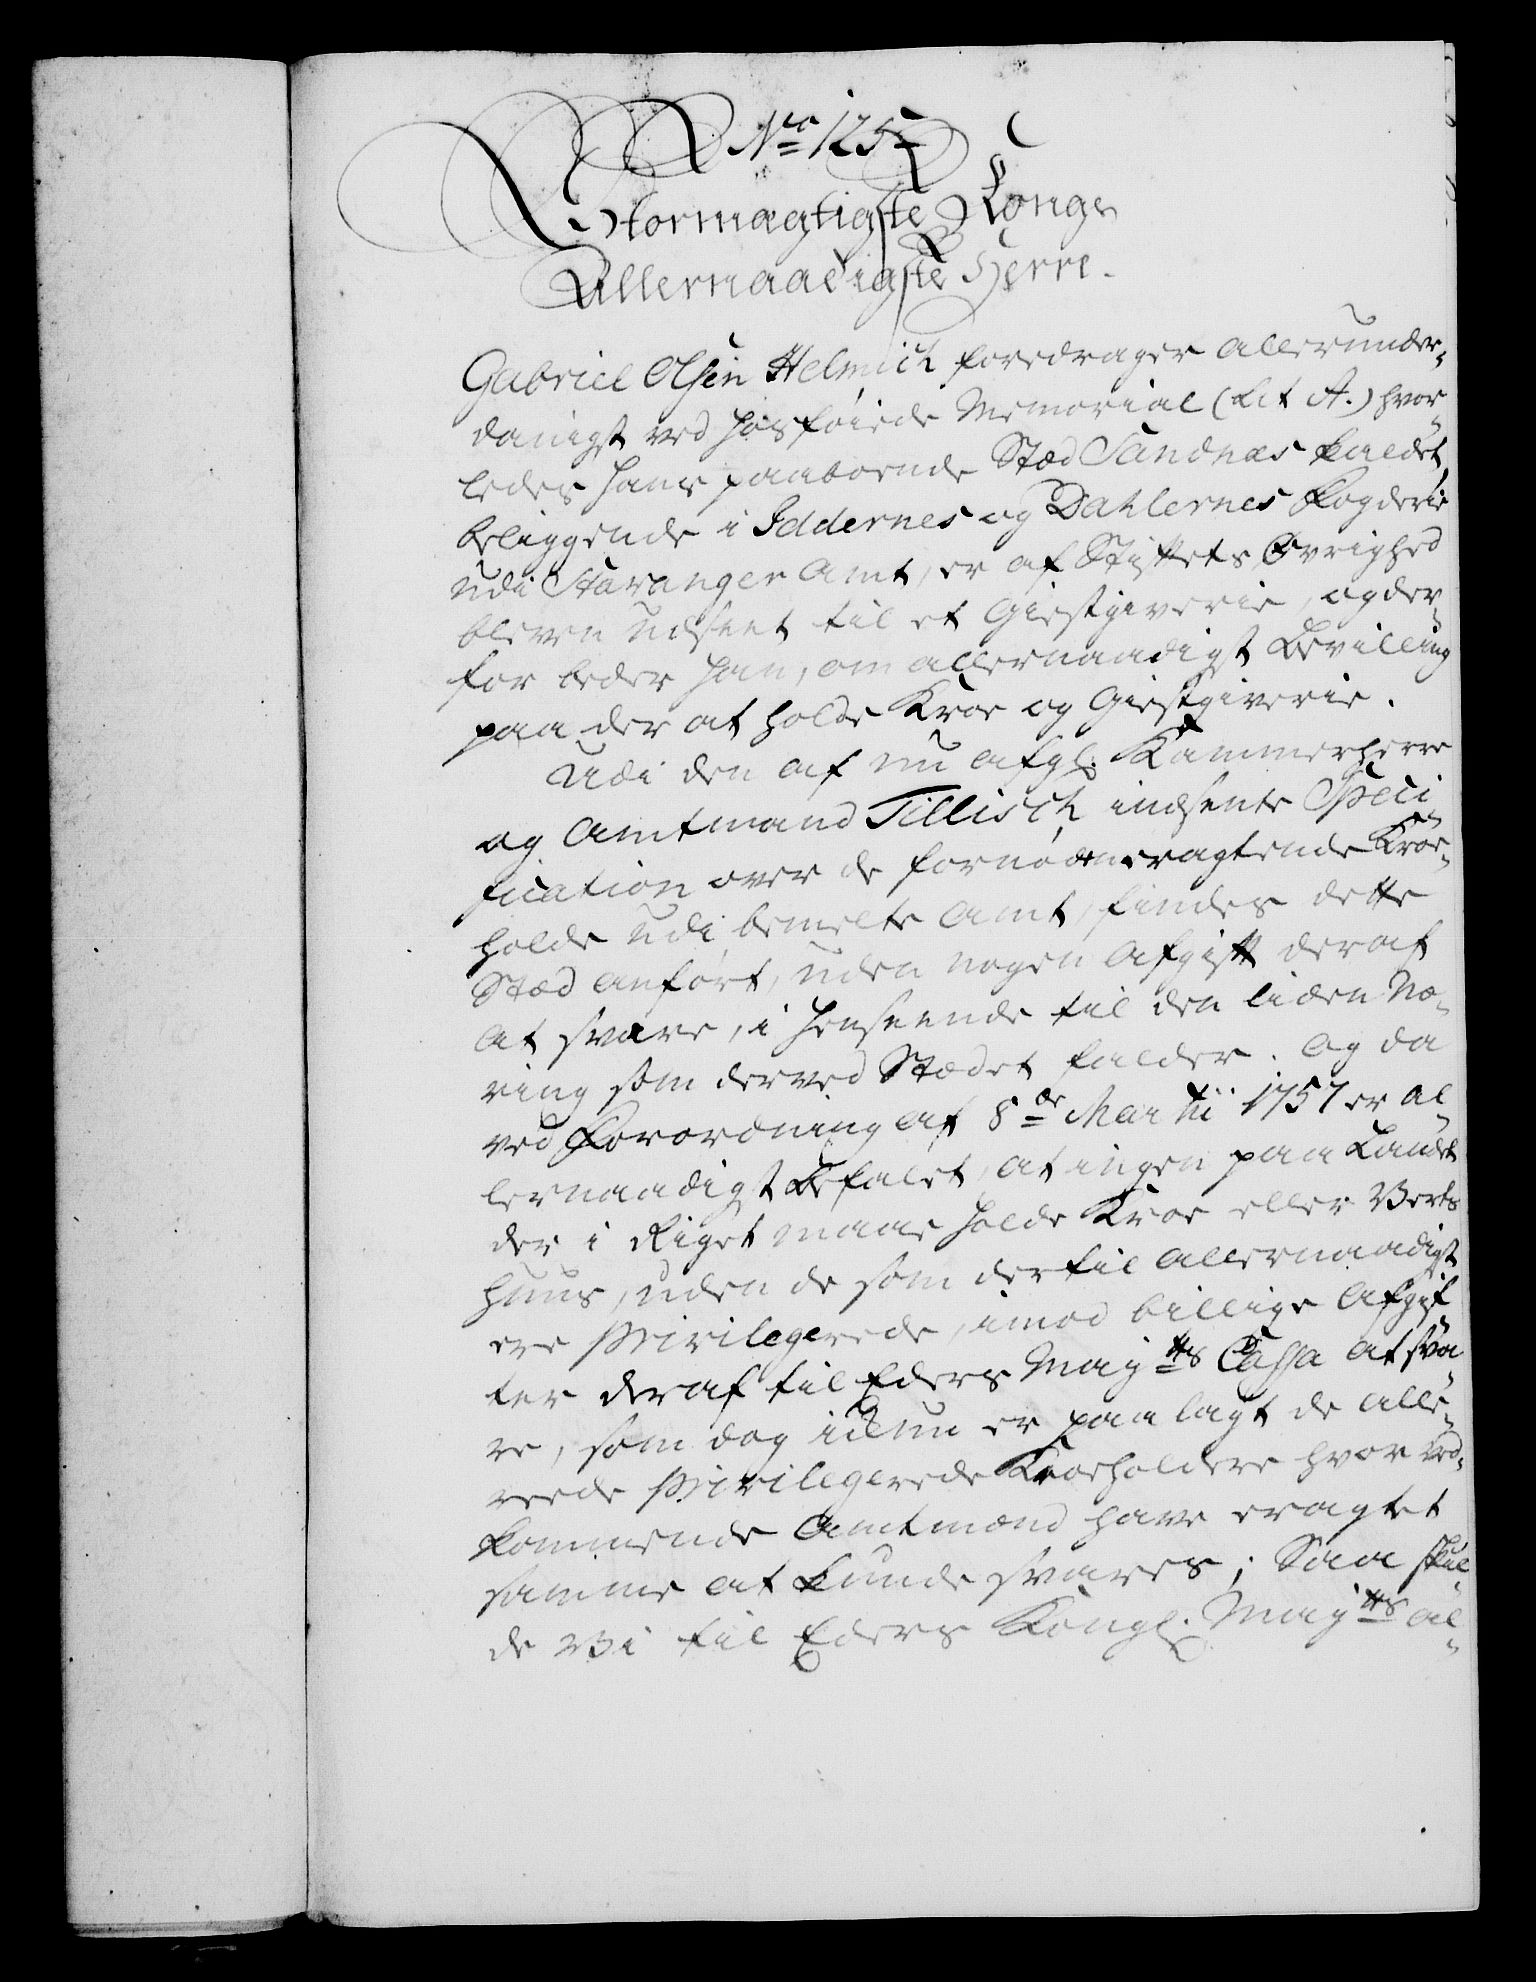 No 125
Stormægtigste Konge
Allernaadigste Herre.
Gabriel Olsen Helmich foredrager allerunder-
danigst ved hosføiede Memorial (Lit A.) hvor-
ledes hans paaboende Stæd Sandnæs kaldet,
beliggende i Jedderns og Dahlernes Fogderie
udi Stavanger Amt, er af Stiftets Øvrighed
bleven udseet til et Giestgiverie, og der-
for beder han, om allernaadigst Bevilling
paa der at holde Kroe og Giestgiverie.
Udi den af nu afgl. Kammerherre
og Amtmand Tillisch indsente Speci-
fication over de fornøden eragtende Kroe-
holde udi bemelte Amt, findes dette
Stæd anført, uden nogen Afgift deraf
at svare, i henseende til den liden Næ-
ring som derved Stædet falder. Og da
ved Forordning af 8de Martii 1757 er al-
lernaadigst befalet, at ingen paa Landet
der i Riget maae holde Kroe eller Verts
huus, uden de som dertil allernaadigst
ere Privilegerede, imod billige Afgif-
ter deraf til Eders Mayts Cassa at sva-
re, som dog ickun er paalagt de alle-
reede Privilegerede Kroeholdere hvor ved-
kommende Amtmænd have eragtet
samme at kunde svares; Saa skul-
de Vi til Eders Kongl. Mayts al-